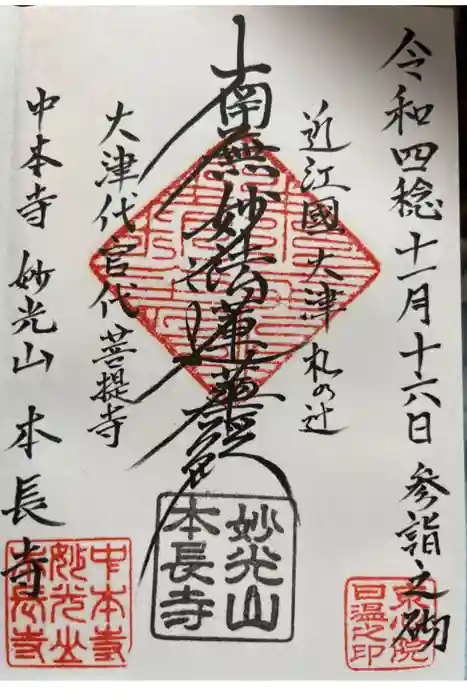 令和四稔十一月十六日 参詣之砌
近江國 大津 札の辻
南無妙法蓮華経
大津代官代菩提寺
中本寺 妙光山 本長寺
妙光山
本長寺
中本寺
妙光山
本長寺
日温之印